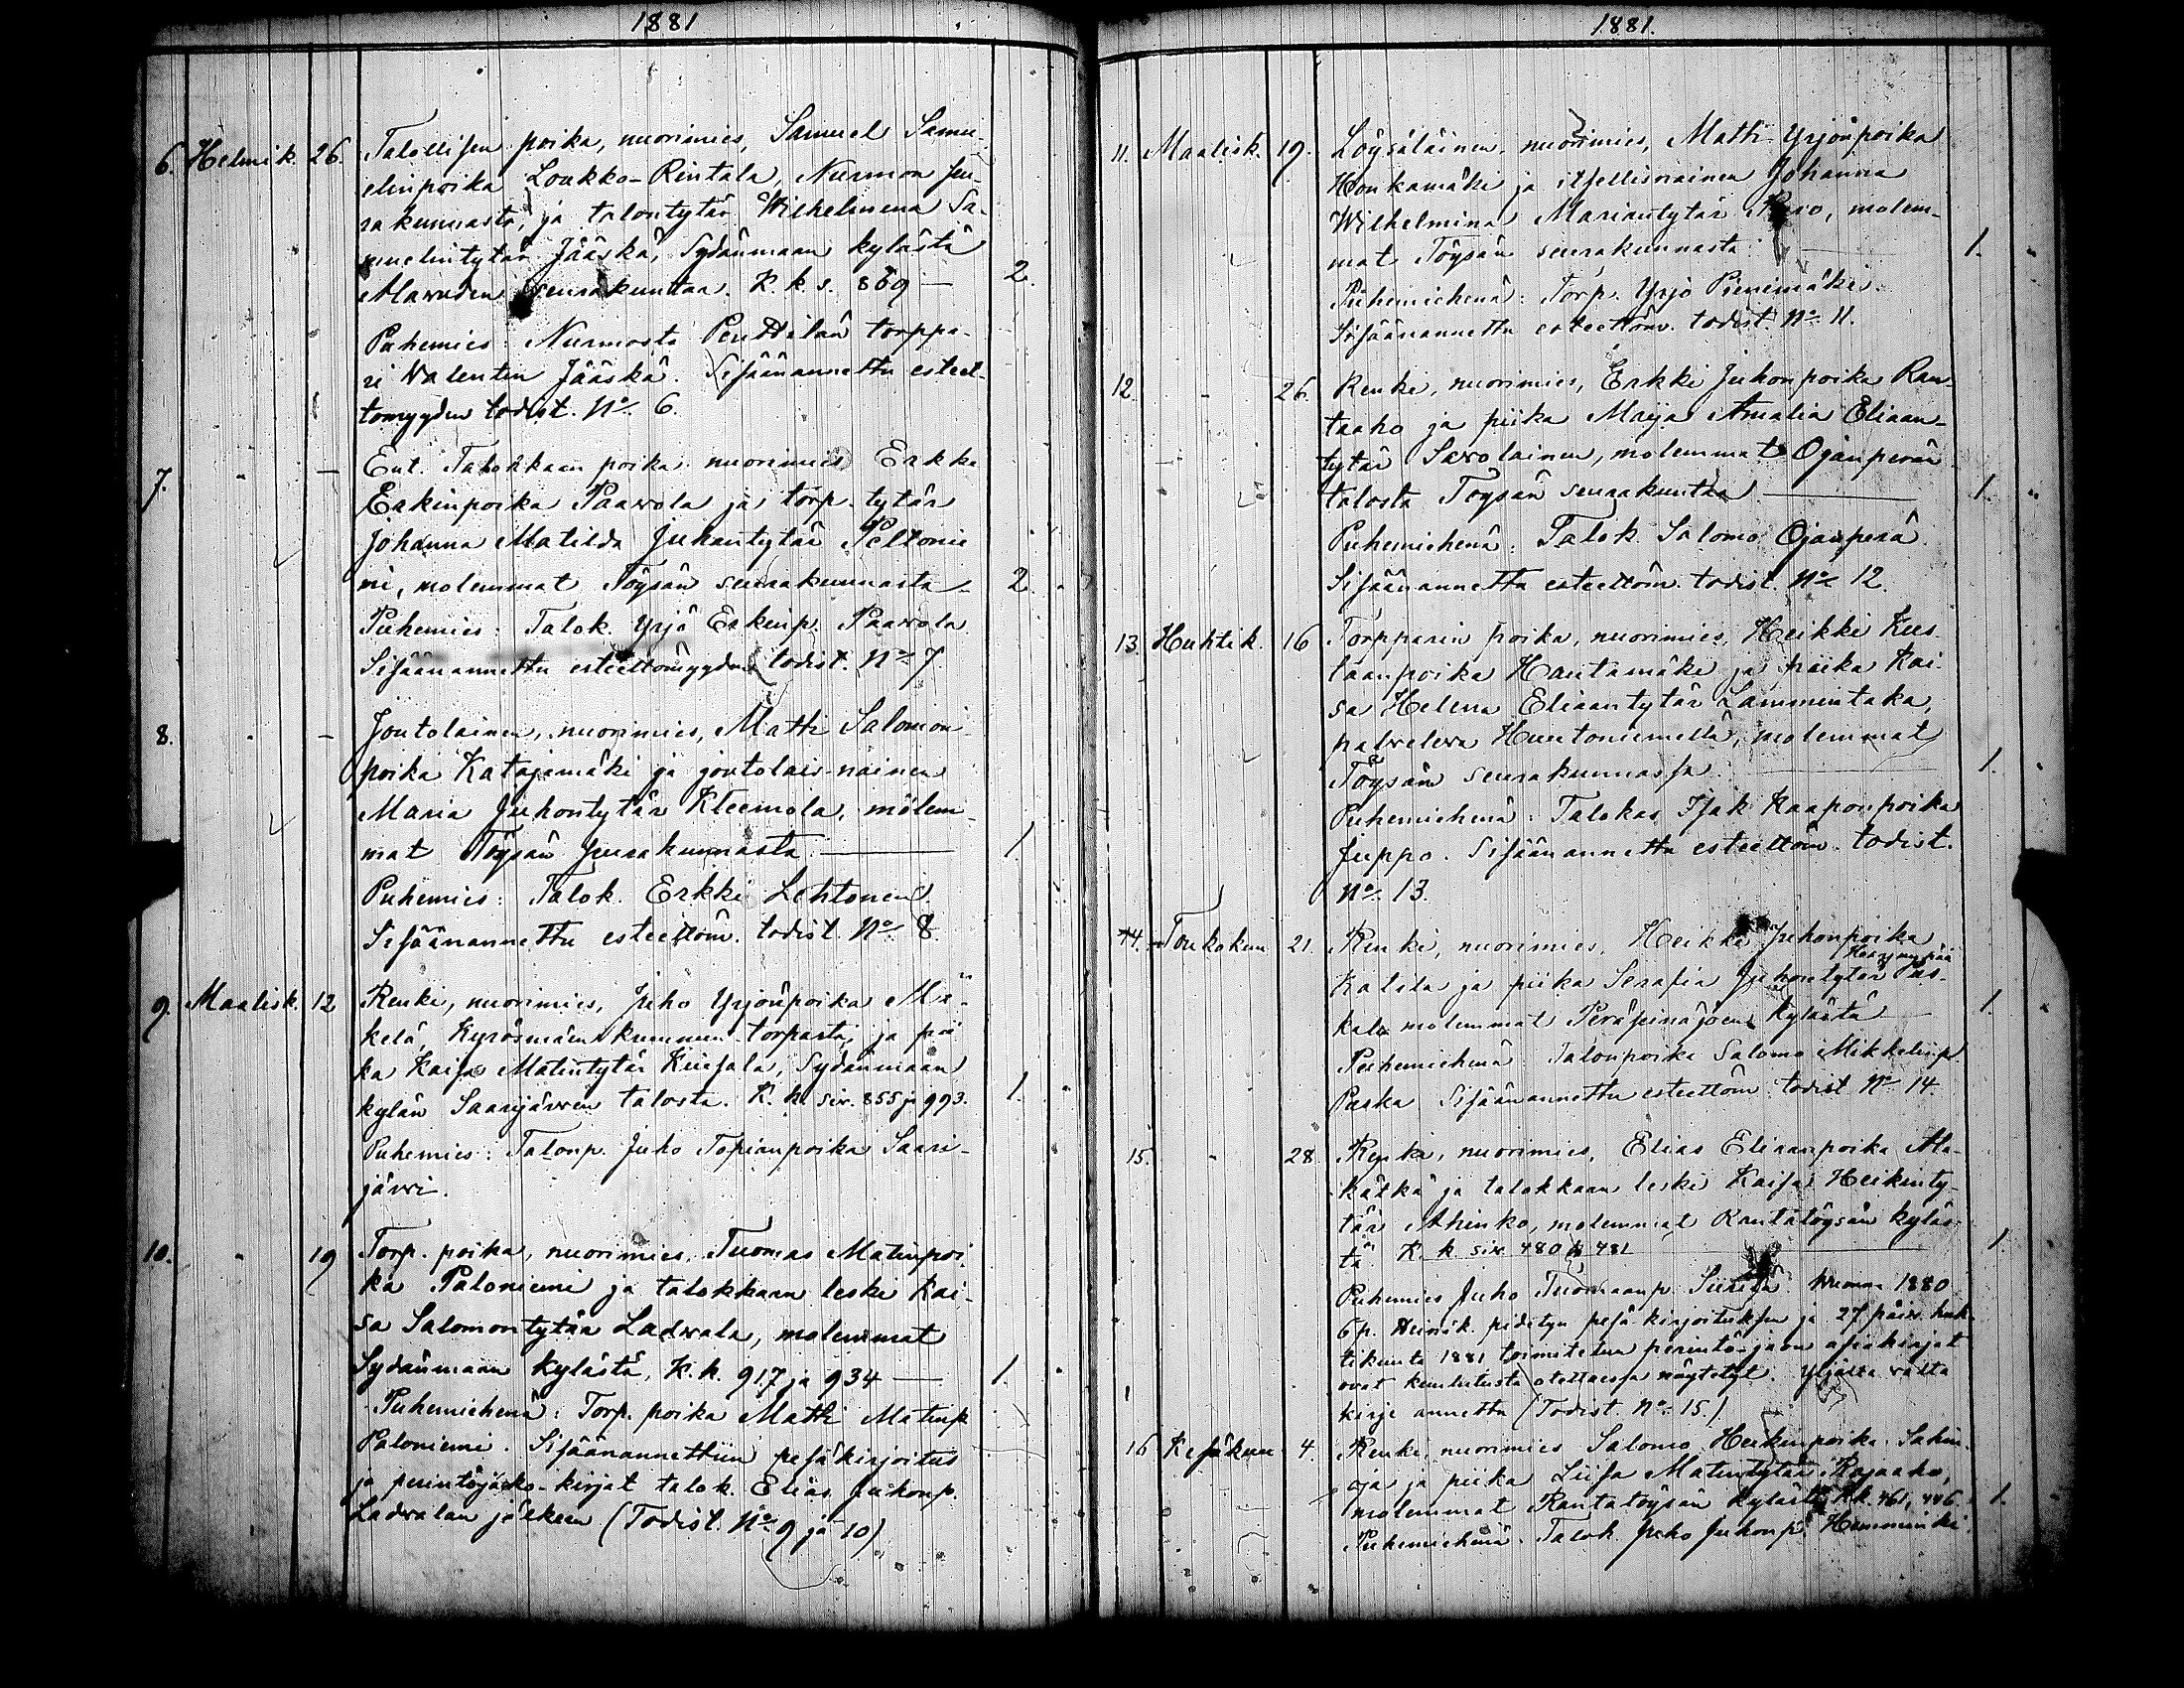 1881
6. Helmik. 26. Talollisen poika, nuorimies, Samuel Samu-
elinpoika Loukko-Rintala, Nurmon seu-
rakunnasta, ja talontytär Wilhelmina Sa-
muelintytär Jääskä, Sydänmaan kylästä
Alavuden seurakuntaa. K. k. s. 869 — 2.
Puhemies: Nurmosta Penttilän torppa-
ri Valentin Jääskä. Sisäänannettu esteet-
tömyyden todist. No 6.
7. " — Ent. Talokkaan poika nuorimies Erkki
Erkinpoika Paavola ja torp. tytär
Johanna Matilda Juhontytär Peltonie
mi, molemmat Töysän seurakunnasta — 2.
Puhemies: Talok. Yrjö Erkinp. Paavola
Sisäänannettu esteettömyyden todist. No 7.
8. " — Joutolainen, nuorimies, Matti Salomon-
poika Katajamäki ja joutolais-nainen
Maria Juhontytär Kleemola, molem-
mat Töysän seurakunnasta — 1.
Puhemies: Talok. Erkki Lehtonen.
Sisäänannettu esteettöm. todist. No 8.
9. Maalisk. 12 Renki, nuorimies, Juho Yrjönpoika Mä-
kelä, Kyrösmäen kunnun torpasta, ja pii
ka Kaisa Matintytär Kuisala, Sydänmaan
kylän Saarijärven talosta. K. k. siv. 855 ja 993. 1.
Puhemies: Talonp. Juho Topianpoika Saari-
järvi.
10. " 19 Torp. poika, nuorimies, Tuomas Matinpoi-
ka Paloniemi ja talokkaan leski Kai-
sa Salomontytär Ladvala, molemmat
Sydänmaan kylästä, K. k. 917 ja 934 — 1.
Puhemiehenä: Torp. poika Matti Matinp
Paloniemi. Sisäänannettiin pesäkirjoitus
ja perintöjako-kirjat talok. Elias Juhonp.
Ladvalan jälkeen (Todist. No 9 ja 10)
1881.
11. Maalisk. 19. Löysäläinen, nuorimies, Matti Yrjönpoika
Honkamäki ja itsellisnainen Johanna
Wilhelmina Mariantytär, molem-
mat Töysän seurakunnasta — 1.
Puhemiehenä: Torp. Yrjö Pienimäki.
Sisäänannettu esteettöm. todist. No 11.
12. " 26. Renki, nuorimies, Erkki Juhonpoika Ran-
taaho ja piika Maija Amalia Eliaan-
tytär Savolainen, molemmat Ojanperän
talosta Töysän seurakuntaa — 1.
Puhemiehenä: Talok. Salomo Ojanperä.
Sisäänannettu esteettöm. todist. No 12.
13 Huhtik. 16 Torpparin poika, nuorimies, Heikki Kus-
taanpoika Hautamäki ja piika Kai-
sa Helena Eliaantytär Lammintaka,
palveleva Huutoniemellä, molemmat
Töysän seurakunnassa — 1.
Puhemiehenä: Talokas Isak Kaaponpoika
Juppo. Sisäänannettu esteettöm. todist.
No 13.
14. Toukokuu 21. Renki, nuorimies, Heikki Juhonpoika
Katila ja piika Serafia Juhontytär Pas-
kala molemmat Peräseinäjoen kylästä — 1.
Puhemiehenä Talonpoika Salomo Mikkelinp
Paska Sisäänannettu esteettöm todist No 14.
15. " 28. Renki, nuorimies, Elias Eliaanpoika Ala-
kätkä ja talokkaan leski Kaisa Heikinty-
tär Ahinko, molemmat Rantatöysän kyläs-
tä K. k. siv 480 & 481 — 1
Puhemies Juho Tuomaanp. vuonna 1880
6 p. Heinäk. pidetyn pesäkirjoituksen ja 27 päiv. huh-
tikuuta 1881 toimitetun perintö-jaon asiakirjat
ovat kuulutusta otettaessa näytetyt.
kirje annettu (Todist. No 15.)
16 Kesäkuu 4. Renki, nuorimies Salomo Heikinpoika Sahin-
oja ja piika Liisa Matintytär Rajaaho,
molemmat Rantatöysän kylästä K.k. 461, 446. 1.
Puhemiehenä. Talok. Juho Juhonp. Hemminki